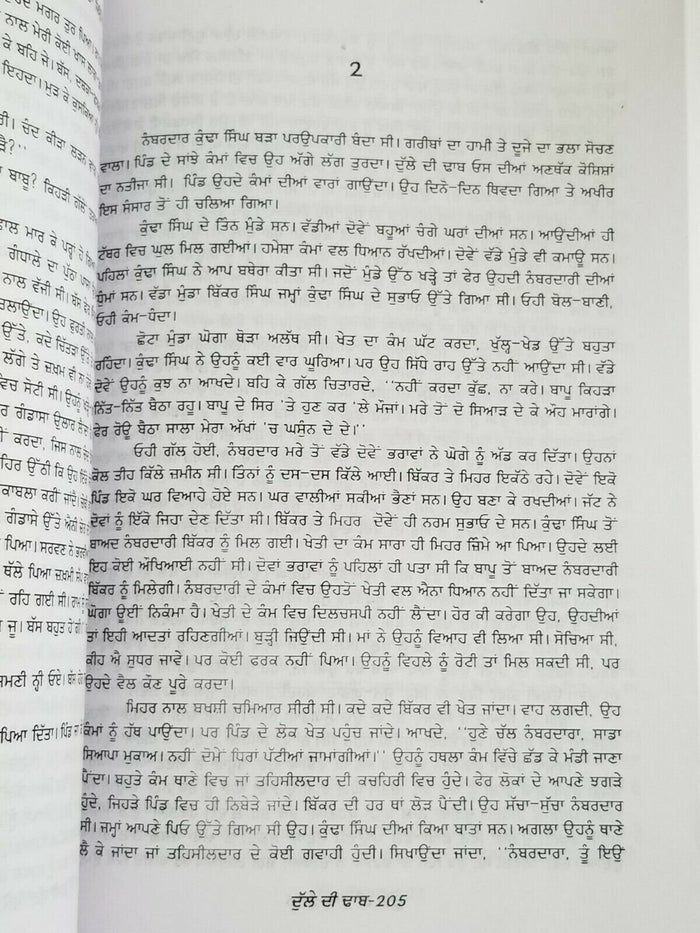 2
ਨੰਬਰਦਾਰ ਕੁੰਢਾ ਸਿੰਘ ਬੜਾ ਪਰਉਪਕਾਰੀ ਬੰਦਾ ਸੀ। ਗਰੀਬਾਂ ਦਾ ਹਾਮੀ ਤੇ ਦੂਜੇ ਦਾ ਭਲਾ ਸੋਚਣ
ਵਾਲਾ। ਪਿੰਡ ਦੇ ਸਾਂਝੇ ਕੰਮਾਂ ਵਿਚ ਉਹ ਅੱਗੇ ਲੱਗ ਤੁਰਦਾ। ਦੁੱਲੇ ਦੀ ਢਾਬ ਓਸ ਦੀਆਂ ਅਣਥੱਕ ਕੋਸਿਸਾਂ
ਦਾ ਨਤੀਜਾ ਸੀ। ਪਿੰਡ ਉਹਦੇ ਕੰਮਾਂ ਦੀਆਂ ਵਾਰਾਂ ਗਾਉਂਦਾ। ਉਹ ਦਿਨੋ-ਦਿਨ ਥਿਵਦਾ ਗਿਆ ਤੇ ਅਖੀਰ
ਇਸ ਸੰਸਾਰ ਤੋਂ ਹੀ ਚਲਿਆ ਗਿਆ।
ਕੁੰਢਾ ਸਿੰਘ ਦੇ ਤਿੰਨ ਮੁੰਡੇ ਸਨ। ਵੱਡੀਆਂ ਦੋਵੇਂ ਬਹੂਆਂ ਚੰਗੇ ਘਰਾਂ ਦੀਆਂ ਸਨ। ਆਉਂਦੀਆਂ ਹੀ
ਟੱਬਰ ਵਿਚ ਘੁਲ ਮਿਲ ਗਈਆਂ। ਹਮੇਸਾ ਕੰਮਾਂ ਵਲ ਧਿਆਨ ਰੱਖਦੀਆਂ। ਦੋਵੇਂ ਵੱਡੇ ਮੁੰਡੇ ਵੀ ਕਮਾਊ ਸਨ।
ਪਹਿਲਾਂ ਕੁੰਢਾ ਸਿੰਘ ਨੇ ਆਪ ਬਥੇਰਾ ਕੀਤਾ ਸੀ। ਜਦੋਂ ਮੁੰਡੇ ਉੱਠ ਖੜ੍ਹੇ ਤਾਂ ਫੇਰ ਉਹਦੀ ਨੰਬਰਦਾਰੀ ਦੀਆਂ
ਧੁੰਮਾਂ ਸਨ। ਵੱਡਾ ਮੁੰਡਾ ਬਿੱਕਰ ਸਿੰਘ ਜਮ੍ਹਾਂ ਕੁੰਢਾ ਸਿੰਘ ਦੇ ਸੁਭਾਓ ਉੱਤੇ ਗਿਆ ਸੀ। ਓਹੀ ਬੋਲ-ਬਾਣੀ,
ਓਹੀ ਕੰਮ-ਧੰਦਾ।
ਛੋਟਾ ਮੁੰਡਾ ਘੋਗਾ ਥੋੜਾ ਅਲੱਥ ਸੀ। ਖੇਤ ਦਾ ਕੰਮ ਘੱਟ ਕਰਦਾ, ਖੁੱਲ੍ਹ-ਖੇਡ ਉੱਤੇ ਬਹੁਤਾ
ਰਹਿੰਦਾ। ਕੁੰਢਾ ਸਿੰਘ ਨੇ ਉਹਨੂੰ ਕਈ ਵਾਰ ਘੂਰਿਆ। ਪਰ ਉਹ ਸਿੱਧੇ ਰਾਹ ਉੱਤੇ ਨਹੀਂ ਆਉਂਦਾ ਸੀ। ਵੱਡੇ
ਦੋਵੇਂ ਉਹਨੂੰ ਕੁਝ ਨਾ ਆਖਦੇ। ਬਹਿ ਕੇ ਗੱਲ ਚਿਤਾਰਦੇ, ''ਨਹੀਂ ਕਰਦਾ ਕੁੱਛ, ਨਾ ਕਰੇ। ਬਾਪੂ ਕਿਹੜਾ
ਨਿੱਤ-ਨਿੱਤ ਬੈਠਾ ਰਹੂ। ਬਾਪੂ ਦੇ ਸਿਰ 'ਤੇ ਹੁਣ ਕਰ 'ਲੇ ਮੌਜਾਂ। ਮਰੇ ਤੋਂ ਦੋ ਸਿਆੜ ਦੇ ਕੇ ਔਹ ਮਾਰਾਂਗੇ।
ਫੇਰ ਰੋਊ ਬੈਠਾ ਸਾਲਾ ਮੇਰਾ ਅੱਖਾਂ 'ਚ ਘਸੁੰਨ ਦੇ ਦੇ।''
ਓਹੀ ਗੱਲ ਹੋਈ, ਨੰਬਰਦਾਰ ਮਰੇ ਤੋਂ ਵੱਡੇ ਦੋਵੇਂ ਭਰਾਵਾਂ ਨੇ ਘੋਗੇ ਨੂੰ ਅੱਡ ਕਰ ਦਿੱਤਾ। ਉਹਨਾਂ
ਕੋਲ ਤੀਹ ਕਿੱਲੇ ਜ਼ਮੀਨ ਸੀ। ਤਿੰਨਾਂ ਨੂੰ ਦਸ-ਦਸ ਕਿੱਲੇ ਆਈ। ਬਿੱਕਰ ਤੇ ਮਿਹਰ ਇਕੱਠੇ ਰਹੇ। ਦੋਵੇਂ ਇਕੋ
ਪਿੰਡ ਇਕੋ ਘਰ ਵਿਆਹੇ ਹੋਏ ਸਨ। ਘਰ ਵਾਲੀਆਂ ਸਕੀਆਂ ਭੈਣਾਂ ਸਨ। ਉਹ ਬਣਾ ਕੇ ਰਖਦੀਆਂ। ਜੱਟ ਨੇ
ਦੋਵਾਂ ਨੂੰ ਇੱਕੋ ਜਿਹਾ ਦੇਣ ਦਿੱਤਾ ਸੀ। ਬਿੱਕਰ ਤੇ ਮਿਹਰ ਦੋਵੇਂ ਹੀ ਨਰਮ ਸੁਭਾਓ ਦੇ ਸਨ। ਕੁੰਢਾ ਸਿੰਘ ਤੋਂ
ਬਾਅਦ ਨੰਬਰਦਾਰੀ ਬਿੱਕਰ ਨੂੰ ਮਿਲ ਗਈ। ਖੇਤੀ ਦਾ ਕੰਮ ਸਾਰਾ ਹੀ ਮਿਹਰ ਜ਼ਿੰਮੇ ਆ ਪਿਆ। ਉਹਦੇ ਲਈ
ਇਹ ਕੋਈ ਔਖਿਆਈ ਨਹੀਂ ਸੀ। ਦੋਵਾਂ ਭਰਾਵਾਂ ਨੂੰ ਪਹਿਲਾਂ ਹੀ ਪਤਾ ਸੀ ਕਿ ਬਾਪੂ ਤੋਂ ਬਾਅਦ ਨੰਬਰਦਾਰੀ
ਬਿੱਕਰ ਨੂੰ ਮਿਲੇਗੀ। ਨੰਬਰਦਾਰੀ ਦੇ ਕੰਮਾਂ ਵਿਚ ਉਹਤੋਂ ਖੇਤੀ ਵਲ ਐਨਾ ਧਿਆਨ ਨਹੀਂ ਦਿੱਤਾ ਜਾ ਸਕੇਗਾ।
ਘੋਗਾ ਊਈਂ ਨਿਕੰਮਾ ਹੈ। ਖੇਤੀ ਦੇ ਕੰਮ ਵਿਚ ਦਿਲਚਸਪੀ ਨਹੀਂ ਲੈਂਦਾ। ਹੋਰ ਕੀ ਕਰੇਗਾ ਉਹ, ਉਹਦੀਆਂ
ਤਾਂ ਇਹੀ ਆਦਤਾਂ ਰਹਿਣਗੀਆਂ। ਬੁੜ੍ਹੀ ਜਿਉਂਦੀ ਸੀ। ਮਾਂ ਨੇ ਉਹਨੂੰ ਵਿਆਹ ਵੀ ਲਿਆ ਸੀ। ਸੋਚਿਆ ਸੀ,
ਕੀਹ ਐ ਸੁਧਰ ਜਾਵੇ। ਪਰ ਕੋਈ ਫਰਕ ਨਹੀਂ ਪਿਆ। ਉਹਨੂੰ ਵਿਹਲੇ ਨੂੰ ਰੋਟੀ ਤਾਂ ਮਿਲ ਸਕਦੀ ਸੀ, ਪਰ
ਉਹਦੇ ਵੈਲ ਕੌਣ ਪੂਰੇ ਕਰਦਾ।
ਮਿਹਰ ਨਾਲ ਬਖਸ਼ੀ ਚਮਿਆਰ ਸੀਰੀ ਸੀ। ਕਦੇ ਕਦੇ ਬਿੱਕਰ ਵੀ ਖੇਤ ਜਾਂਦਾ। ਵਾਹ ਲਗਦੀ, ਉਹ
ਕੰਮਾਂ ਨੂੰ ਹੱਥ ਪਾਉਂਦਾ। ਪਰ ਪਿੰਡ ਦੇ ਲੋਕ ਖੇਤ ਪਹੁੰਚ ਜਾਂਦੇ। ਆਖਦੇ, ''ਹੁਣੇ ਚੱਲ ਨੰਬਰਦਾਰਾ, ਸਾਡਾ
ਸਿਆਪਾ ਮੁਕਾਅ। ਨਹੀਂ ਦੋਮੇਂ ਧਿਰਾਂ ਪੱਟੀਆਂ ਜਾਮਾਂਗੀਆਂ।'' ਉਹਨੂੰ ਹਥਲਾ ਕੰਮ ਵਿੱਚੇ ਛੱਡ ਕੇ ਮੰਡੀ ਜਾਣਾ
ਪੈਂਦਾ। ਬਹੁਤੇ ਕੰਮ ਥਾਣੇ ਵਿਚ ਜਾਂ ਤਹਿਸੀਲਦਾਰ ਦੀ ਕਚਹਿਰੀ ਵਿਚ ਹੁੰਦੇ। ਫੇਰ ਲੋਕਾਂ ਦੇ ਆਪਣੇ ਝਗੜੇ
ਹੁੰਦੇ, ਜਿਹੜੇ ਪਿੰਡ ਵਿਚ ਹੀ ਨਿਬੇੜੇ ਜਾਂਦੇ। ਬਿੱਕਰ ਦੀ ਹਰ ਥਾਂ ਲੋੜ ਪੈਂਦੀ। ਉਹ ਸੱਚਾ-ਸੁੱਚਾ ਨੰਬਰਦਾਰ
ਸੀ। ਜਮ੍ਹਾਂ ਆਪਣੇ ਪਿਓ ਉੱਤੇ ਗਿਆ ਸੀ ਉਹ। ਕੁੰਢਾ ਸਿੰਘ ਦੀਆਂ ਕਿਆ ਬਾਤਾਂ ਸਨ। ਅਗਲਾ ਉਹਨੂੰ ਥਾਣੇ
ਲੈ ਕੇ ਜਾਂਦਾ ਜਾਂ ਤਹਿਸੀਲਦਾਰ ਦੇ ਕੋਈ ਗਵਾਹੀ ਹੁੰਦੀ। ਸਿਖਾਉਂਦਾ ਜਾਂਦਾ, ''ਨੰਬਰਦਾਰਾ, ਤੂੰ ਇਉਂ
ਦੁੱਲੇ ਦੀ ਢਾਬ-205